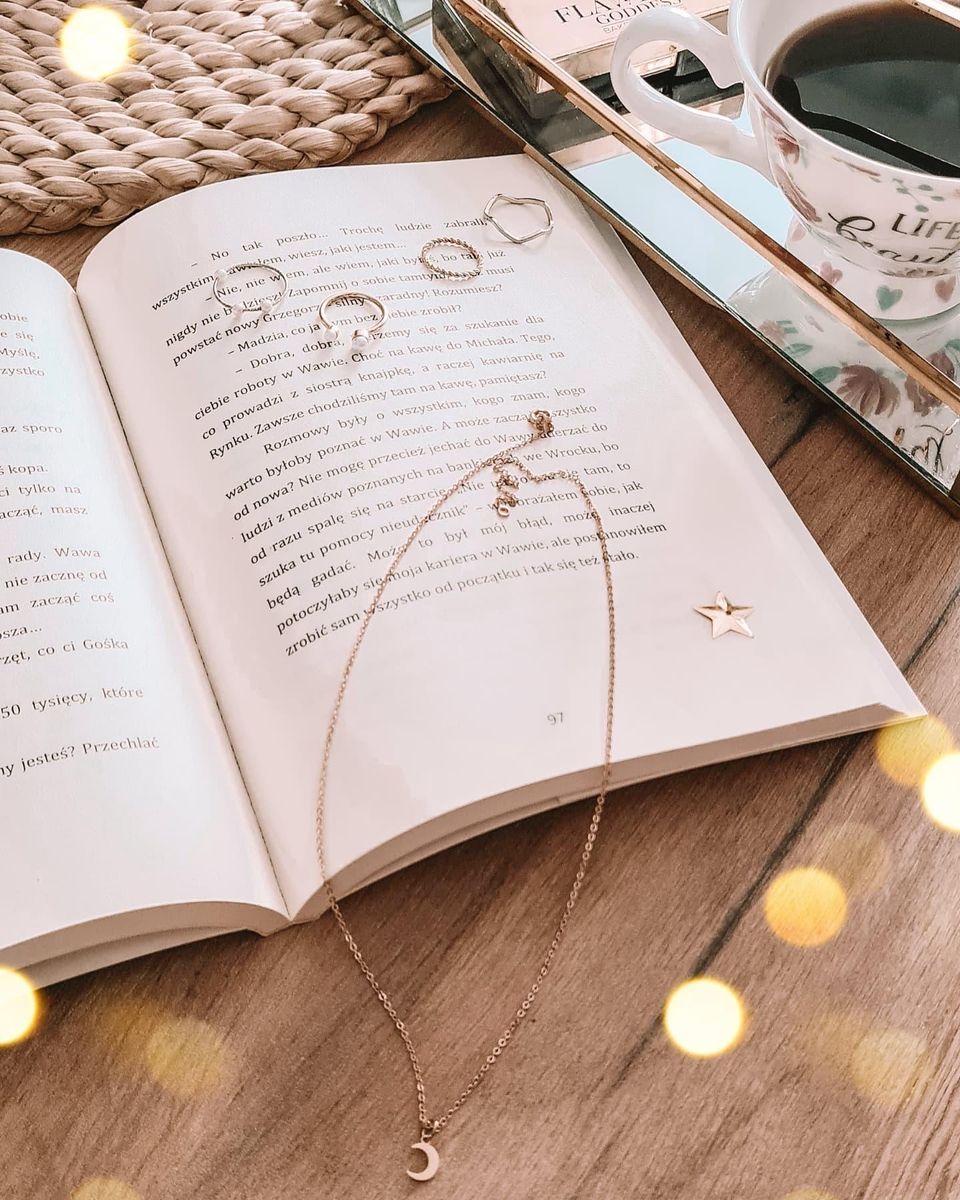 obie
się
Myślę,
zystko
az sporo
ś kopa.
ci tylko na
acząć, masz
rady. Wawa
nie zacznę od
am zacząć coś
osza...
rzęt, co ci Gośka
50 tysięcy, które
ny jesteś? Przechlać
– No tak poszło... Trochę ludzie zabrali,
wszystkim wiesz, jaki jestem...
– Nie, nie wiem, ale wiem, jaki już
nigdy nie Zapomnij o sobie tamtym musi
powstać nowy silny i zaradny! Rozumiesz?
– Madzia, co ja bym bez ciebie zrobił?
– Dobra, dobra. się za szukanie dla
ciebie roboty w Wawie. Choć na kawę do Michała. Tego,
co prowadzi z siostrą knajpkę, a raczej kawiarnię na
Rynku. Zawsze chodziliśmy tam na kawę, pamiętasz?
Rozmowy były o wszystkim, kogo znam, kogo
warto byłoby poznać w Wawie. A może zacząć wszystko
od nowa? Nie mogę przecież jechać do Wawy do
ludzi z mediów poznanych na we Wrocku, bo
od razu spalę się na starcie. Nie tam, to
szuka tu pomocy – wyobrażałem sobie, jak
będą gadać. Może to był mój błąd, może inaczej
potoczyłaby się moja kariera w Wawie, ale postanowiłem
zrobić sam wszystko od początku i tak się też stało.
97
GODDESS
LIFE